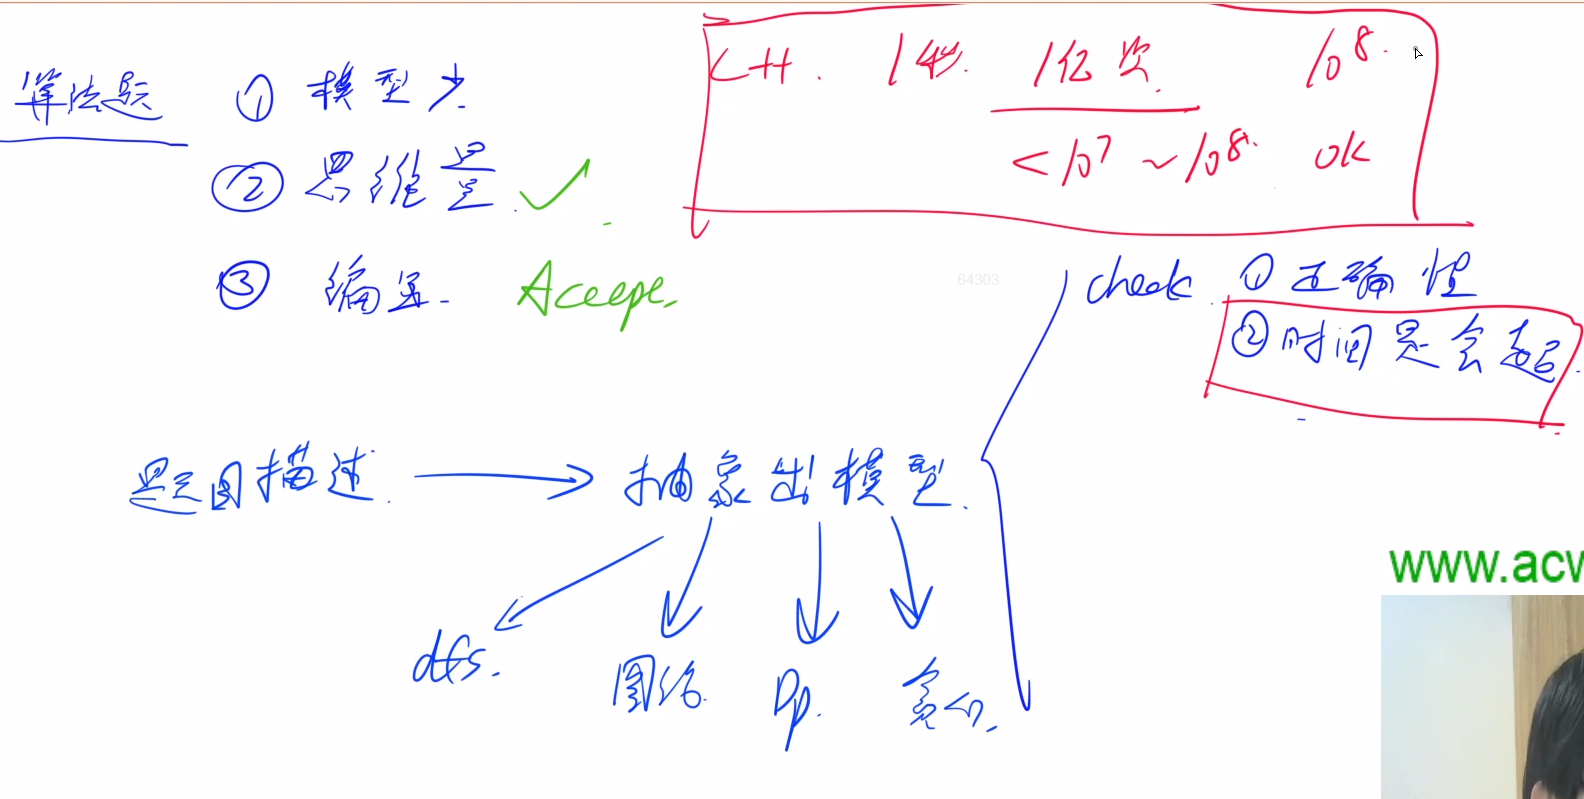 算法题 ① 模型少
② 思维量 ✓
③ 编写. Accept.
C++. 1秒. 1亿次. 10^8.
< 10^7 ~ 10^8. ok
64303
check ① 正确性
② 时间是会超.
题目描述. → 抽象出模型.
dfs. 图论. Dp. 贪心.
www.acw